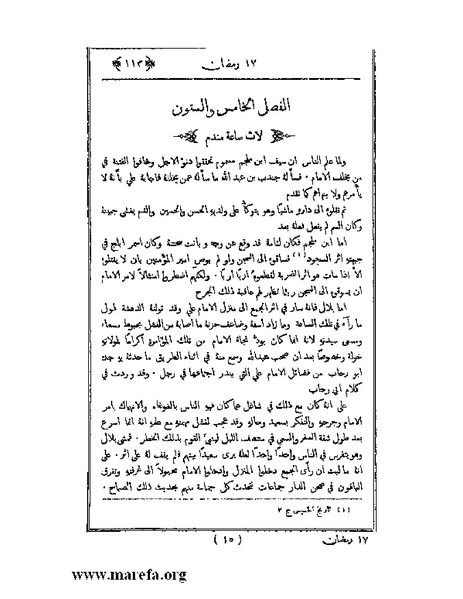 ١٧ رمضان ﴿١١٣﴾
الفصل الخامس والستون
لات ساعة مندم
ولما علم الناس ان سيف ابن ملجم مسموم تحققوا دنوّ الاجل وخافوا الفتنة في
من يخلف الامام. فسأله جندب بن عبد الله ما سأله عمن يخلفه فاجابه علي بأنه لا
يأمرهم ولا ينهاهم كما تقدم
ثم نقلوه الى داره ماشيًا وهو يتوكأ على ولديه الحسن والحسين والدم يغشى جبينه
وكان السم لم يفعل فعله بعد
اما ابن ملجم فكان لثامه قد وقع عن وجهه وبانت سحنته وكان اسمر ابلج في
جبهته اثر السجود (١) فساقوه الى السجن ولو لم يوص امير المؤمنين بان لا يقتلوه
الا اذا مات هو اثر الضربة لقطعوه اربًا اربًا. ولكنهم اضطروا امتثالًا لامر الامام
ان يسوقوه الى السجن ريثما تظهر لهم عاقبة ذلك الجرح
اما بلال فانه سار في اثر الجمع الى منزل الامام علي وقد تولته الدهشة لهول
ما رآه في تلك الساعة وما زاد اسفه وضاعف حزنه ما اصابه من الفشل بحبوط مسعاه
ومسعى سيدته لانه انما كان يودّ نجاة الامام من تلك المؤامرة اكرامًا لمولاته
خولة وخصوصًا بعد ان صحب عبد الله وسمع منه في اثناء الطريق ما حدثه به جده
ابو رحاب من فضائل الامام علي التي يندر اجتماعها في رجل. وقد وردت في
كلام ابي رحاب
على انه كان مع ذلك في شاغل عما كان فيه الناس بالضوضاء والانهماك بامر
الامام وجرحه والتفكر بسعيد وحاله وقد عجب لفشل مهمته مع طول انه انما اسرع
بعد طول شقة السفر والسعي في منتصف الليل لينبئ القوم بذلك الخطر. فمشى بلال
وهو يتفرس في الناس واحدًا واحدًا لعله يرى سعيدًا بينهم فلم يقف له على اثر. على
انه ما لبث ان رأى الجمع دخلوا المنزل وادخلوا الامام محمولًا الى غرفته وتفرق
الباقون في صحن الدار جماعات تتحدث كل جماعة منهم بحديث ذلك الصباح.
(١) تاريخ الخميس ج ٢
١٧ رمضان (١٥)
www.marefa.org